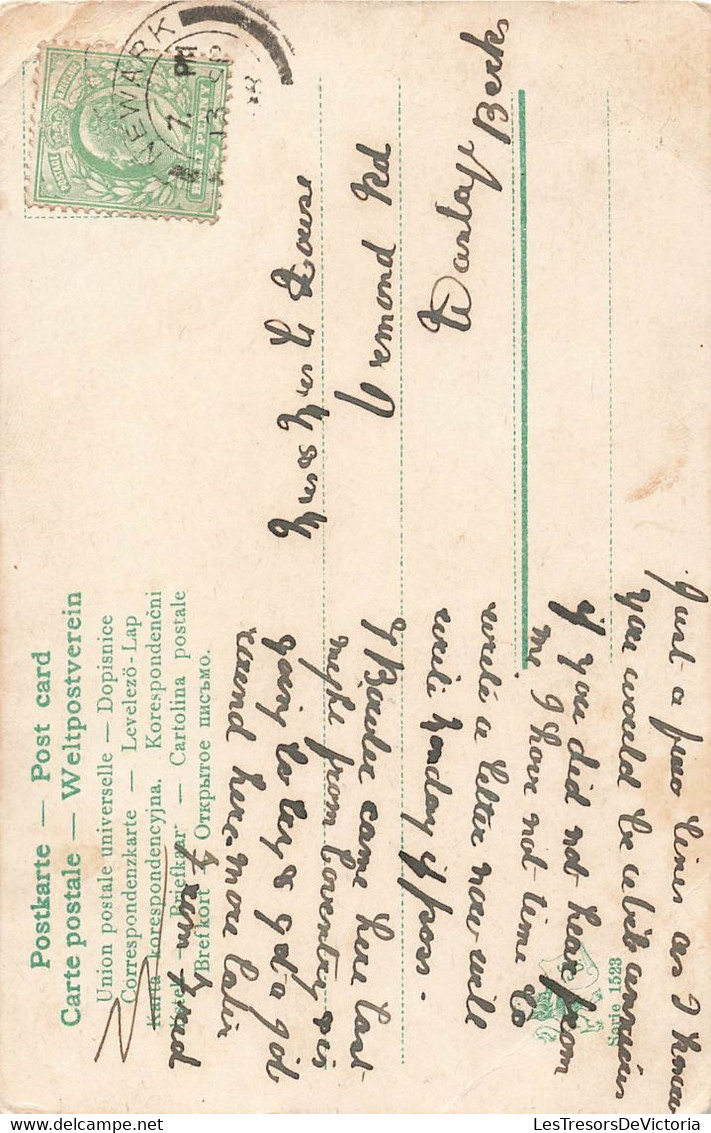 Postkarte — Post card
Carte postale — Weltpostverein
Union postale universelle — Dopisnice
Correspondenzkarte — Levelező-Lap
Karta korespondencyjna. Korespondenční
lístek — Briefkaart — Cartolina postale
Brefkort — Открытое письмо.
NEWARK
7. PM
13 SP
HALF PENNY
Ormond Rd
Wantage Berks
Just a few lines as I know
you would be a bit anxious
if you did not hear from
me I have not time to
write a letter now will
write Monday if poss.
J Bowler came here last
night from Coventry his
going to try & get a job
round here. more later
from Fred
Serie 1523
LesTresorsDeVictoria
delcampe.net